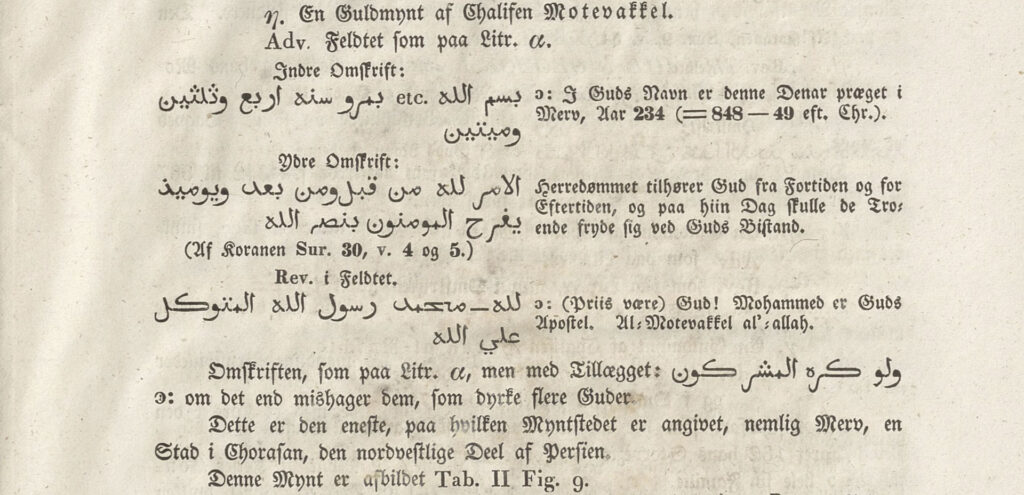 η. En Guldmynt af Chalifen Motevakkel.
Adv. Feldtet som paa Litr. α.
Indre Omskrift:
بسم الله etc. بمرو سنه اربع وثلثين
وميتين
ɔ: I Guds Navn er denne Denar præget i
Merv, Aar 234 (= 848 — 49 eft. Chr.).
Ydre Omskrift:
الامر لله من قبل ومن بعد ويوميذ
يفرح المومنون بنصر الله
(Af Koranen Sur. 30, v. 4 og 5.)
Herredømmet tilhører Gud fra Fortiden og for
Eftertiden, og paa hiin Dag skulle de Tro-
ende fryde sig ved Guds Bistand.
Rev. i Feldtet.
لله — محمد رسول الله المتوكل
علي الله
ɔ: (Priis være) Gud! Mohammed er Guds
Apostel. Al-Motevakkel al'-allah.
Omskriften, som paa Litr. α, men med Tillægget: ولو كره المشركون
ɔ: om det end mishager dem, som dyrke flere Guder.
Dette er den eneste, paa hvilken Myntstedet er angivet, nemlig Merv, en
Stad i Chorasan, den nordvestlige Deel af Persien.
Denne Mynt er afbildet Tab. II Fig. 9.